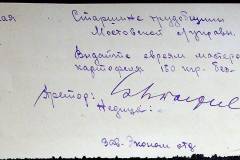 ая Старшине трудобщины
Мостовской Управы.
Выдайте евреям мастеров
картофеля 150 кгр. без-
Претор:
Недица:-
Зав. Эконом. отд.